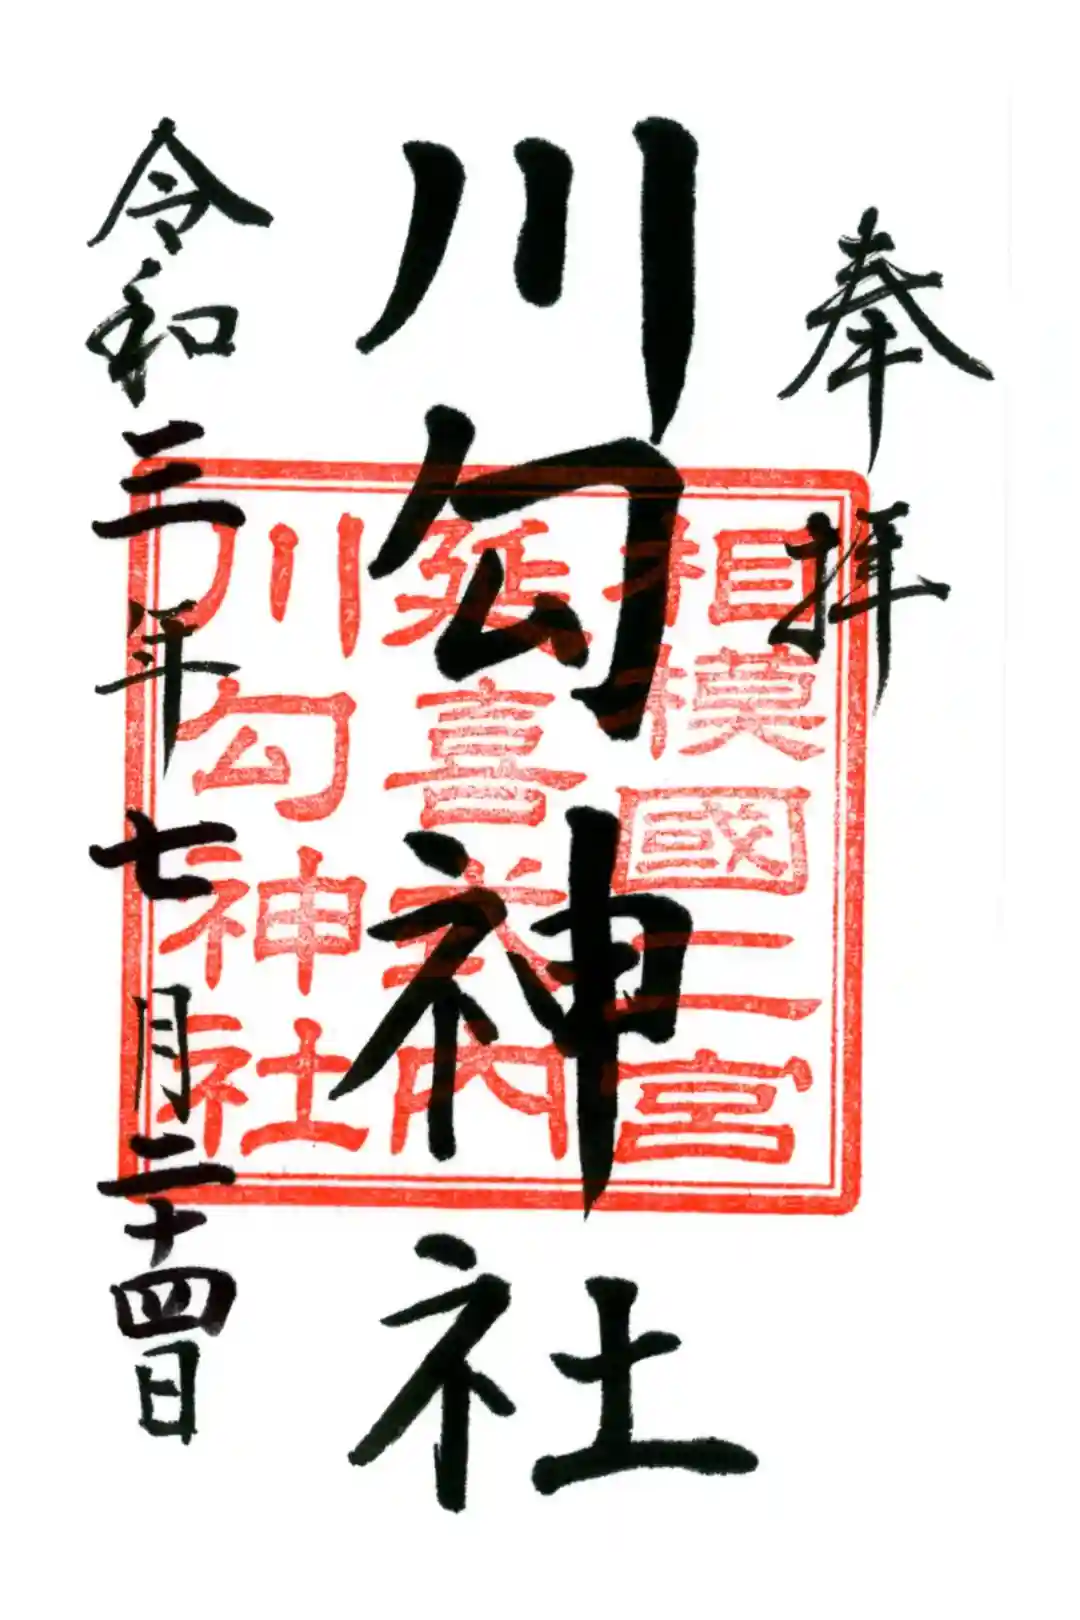 奉拝
川勾神社
令和三年七月二十四日
相模國二宮
延喜式内
川勾神社